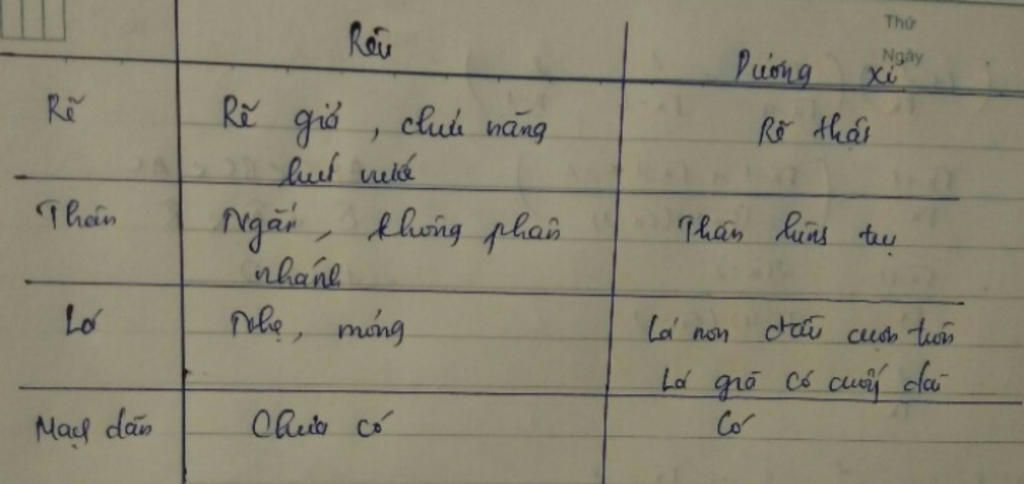 Thứ
Rêu
Ngày
Dương xỉ
Rễ
Rễ giả, chức năng
Rễ thật
hút nước
Thân
Ngắn, không phân
Thân hình trụ
nhánh
Lá
Nhẹ, mỏng
Lá non đầu cuộn tròn
Lá già có cuống dài
Mạch dẫn
Chưa có
Có